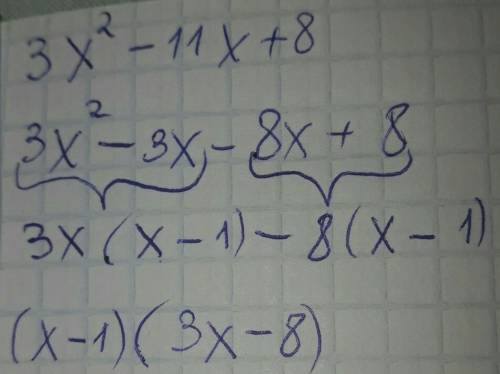 3x² - 11x + 8
3x² - 3x - 8x + 8
3x(x - 1) - 8(x - 1)
(x - 1)(3x - 8)